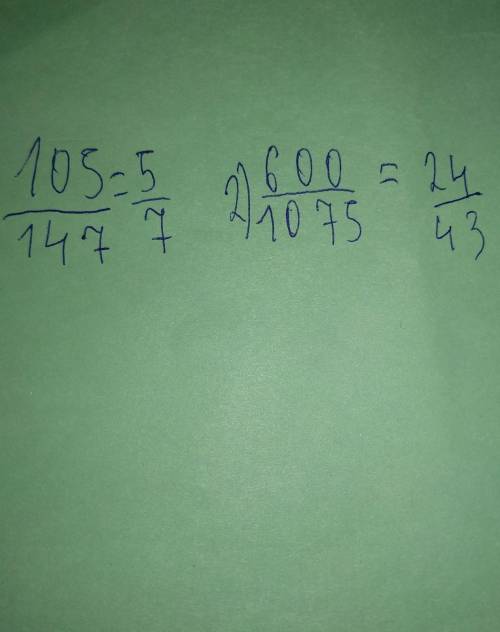 105/147 = 5/7 2) 600/1075 = 24/43